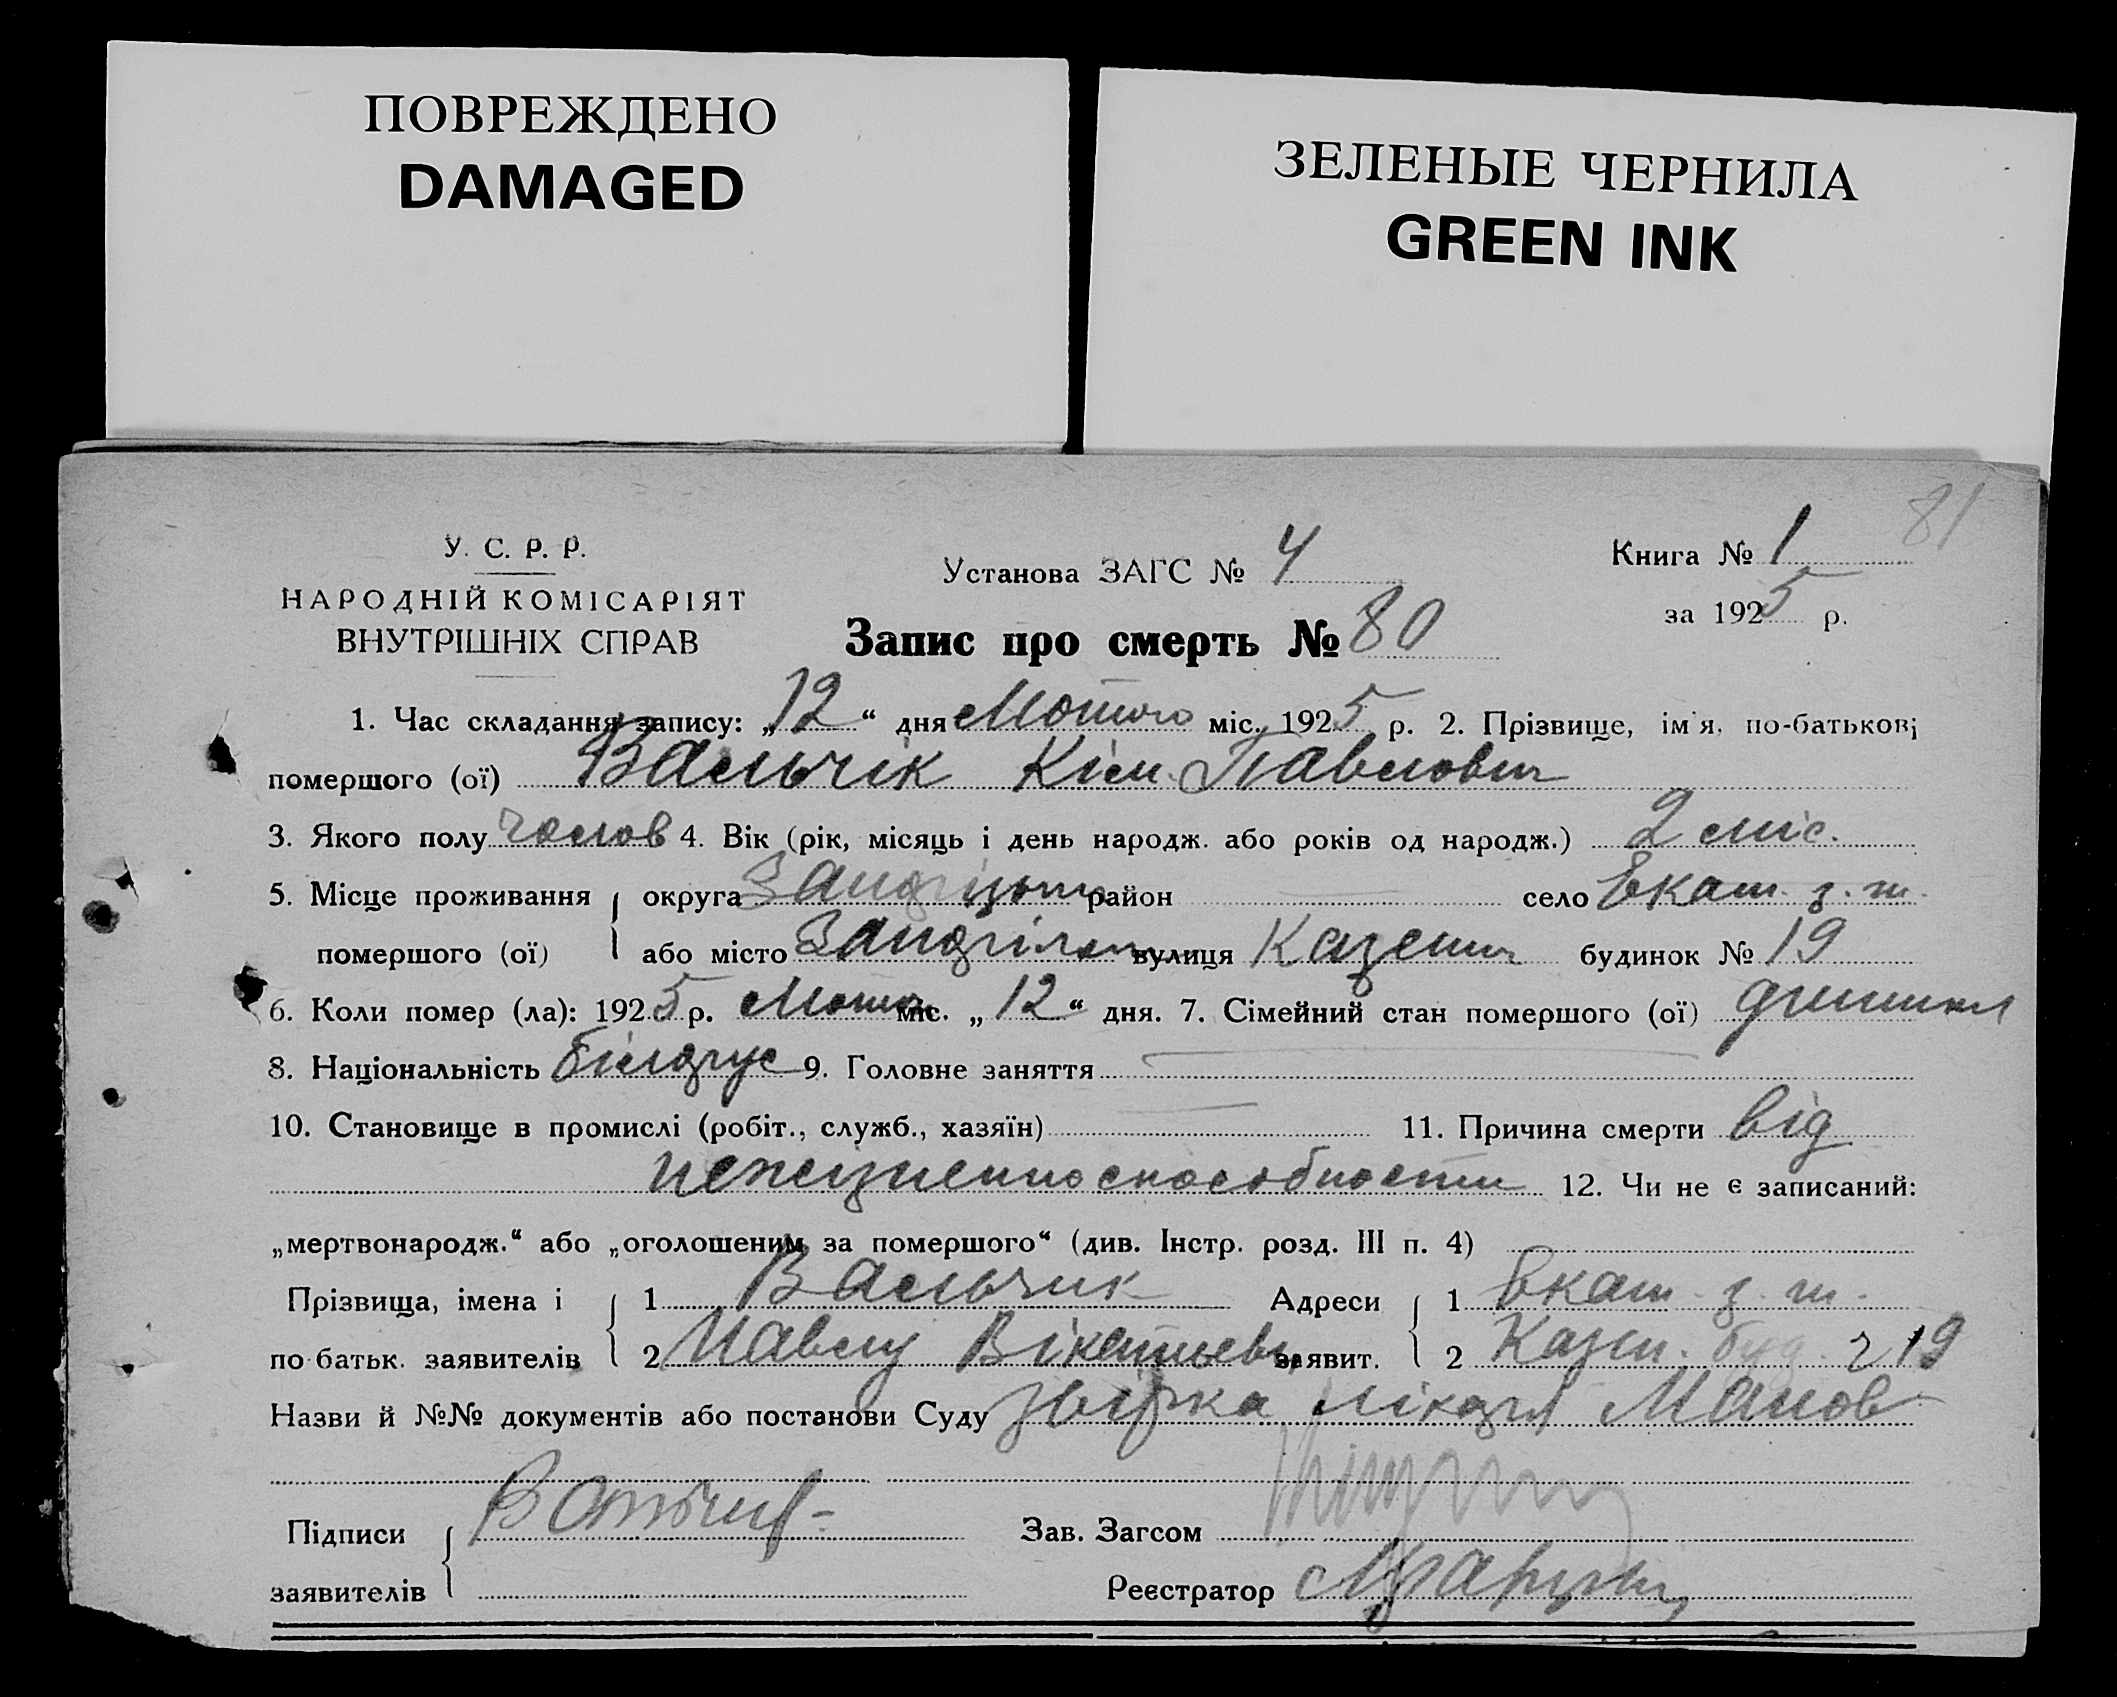 ПОВРЕЖДЕНО
DAMAGED
ЗЕЛЕНЫЕ ЧЕРНИЛА
GREEN INK
81
У. С. Р. Р.
НАРОДНІЙ КОМІСАРІЯТ
ВНУТРІШНІХ СПРАВ
Установа ЗАГС № 4
Книга № 1
за 1925 р.
Запис про смерть № 80
1. Час складання запису: „12“ дня Лютого міс. 1925 р. 2. Прізвище, ім'я, по-батькові
помершого (ої) Вальчік Кім Павлович
3. Якого полу чолов 4. Вік (рік, місяць і день народж. або років од народж.) 2 міс.
5. Місце проживання округа район село Екат. з. т.
помершого (ої) або місто вулиця Казенн будинок № 19
6. Коли помер (ла): 1925 р. Лютого міс. „12“ дня. 7. Сімейний стан помершого (ої)
8. Національність білорус 9. Головне заняття
10. Становище в промислі (робіт., служб., хазяїн) 11. Причина смерти від
нежизненноспособности 12. Чи не є записаний:
„мертвонародж.“ або „оголошеним за помершого“ (див. Інстр. розд. III п. 4)
Прізвища, імена і 1 Вальчик Адреси 1 Екат. з. т.
по-батьк. заявителів 2 Павлу заявит. 2 Казен. буд. ч 19
Назви й №№ документів або постанови Суду лікаря
Підписи Зав. Загсом
заявителів Реєстратор